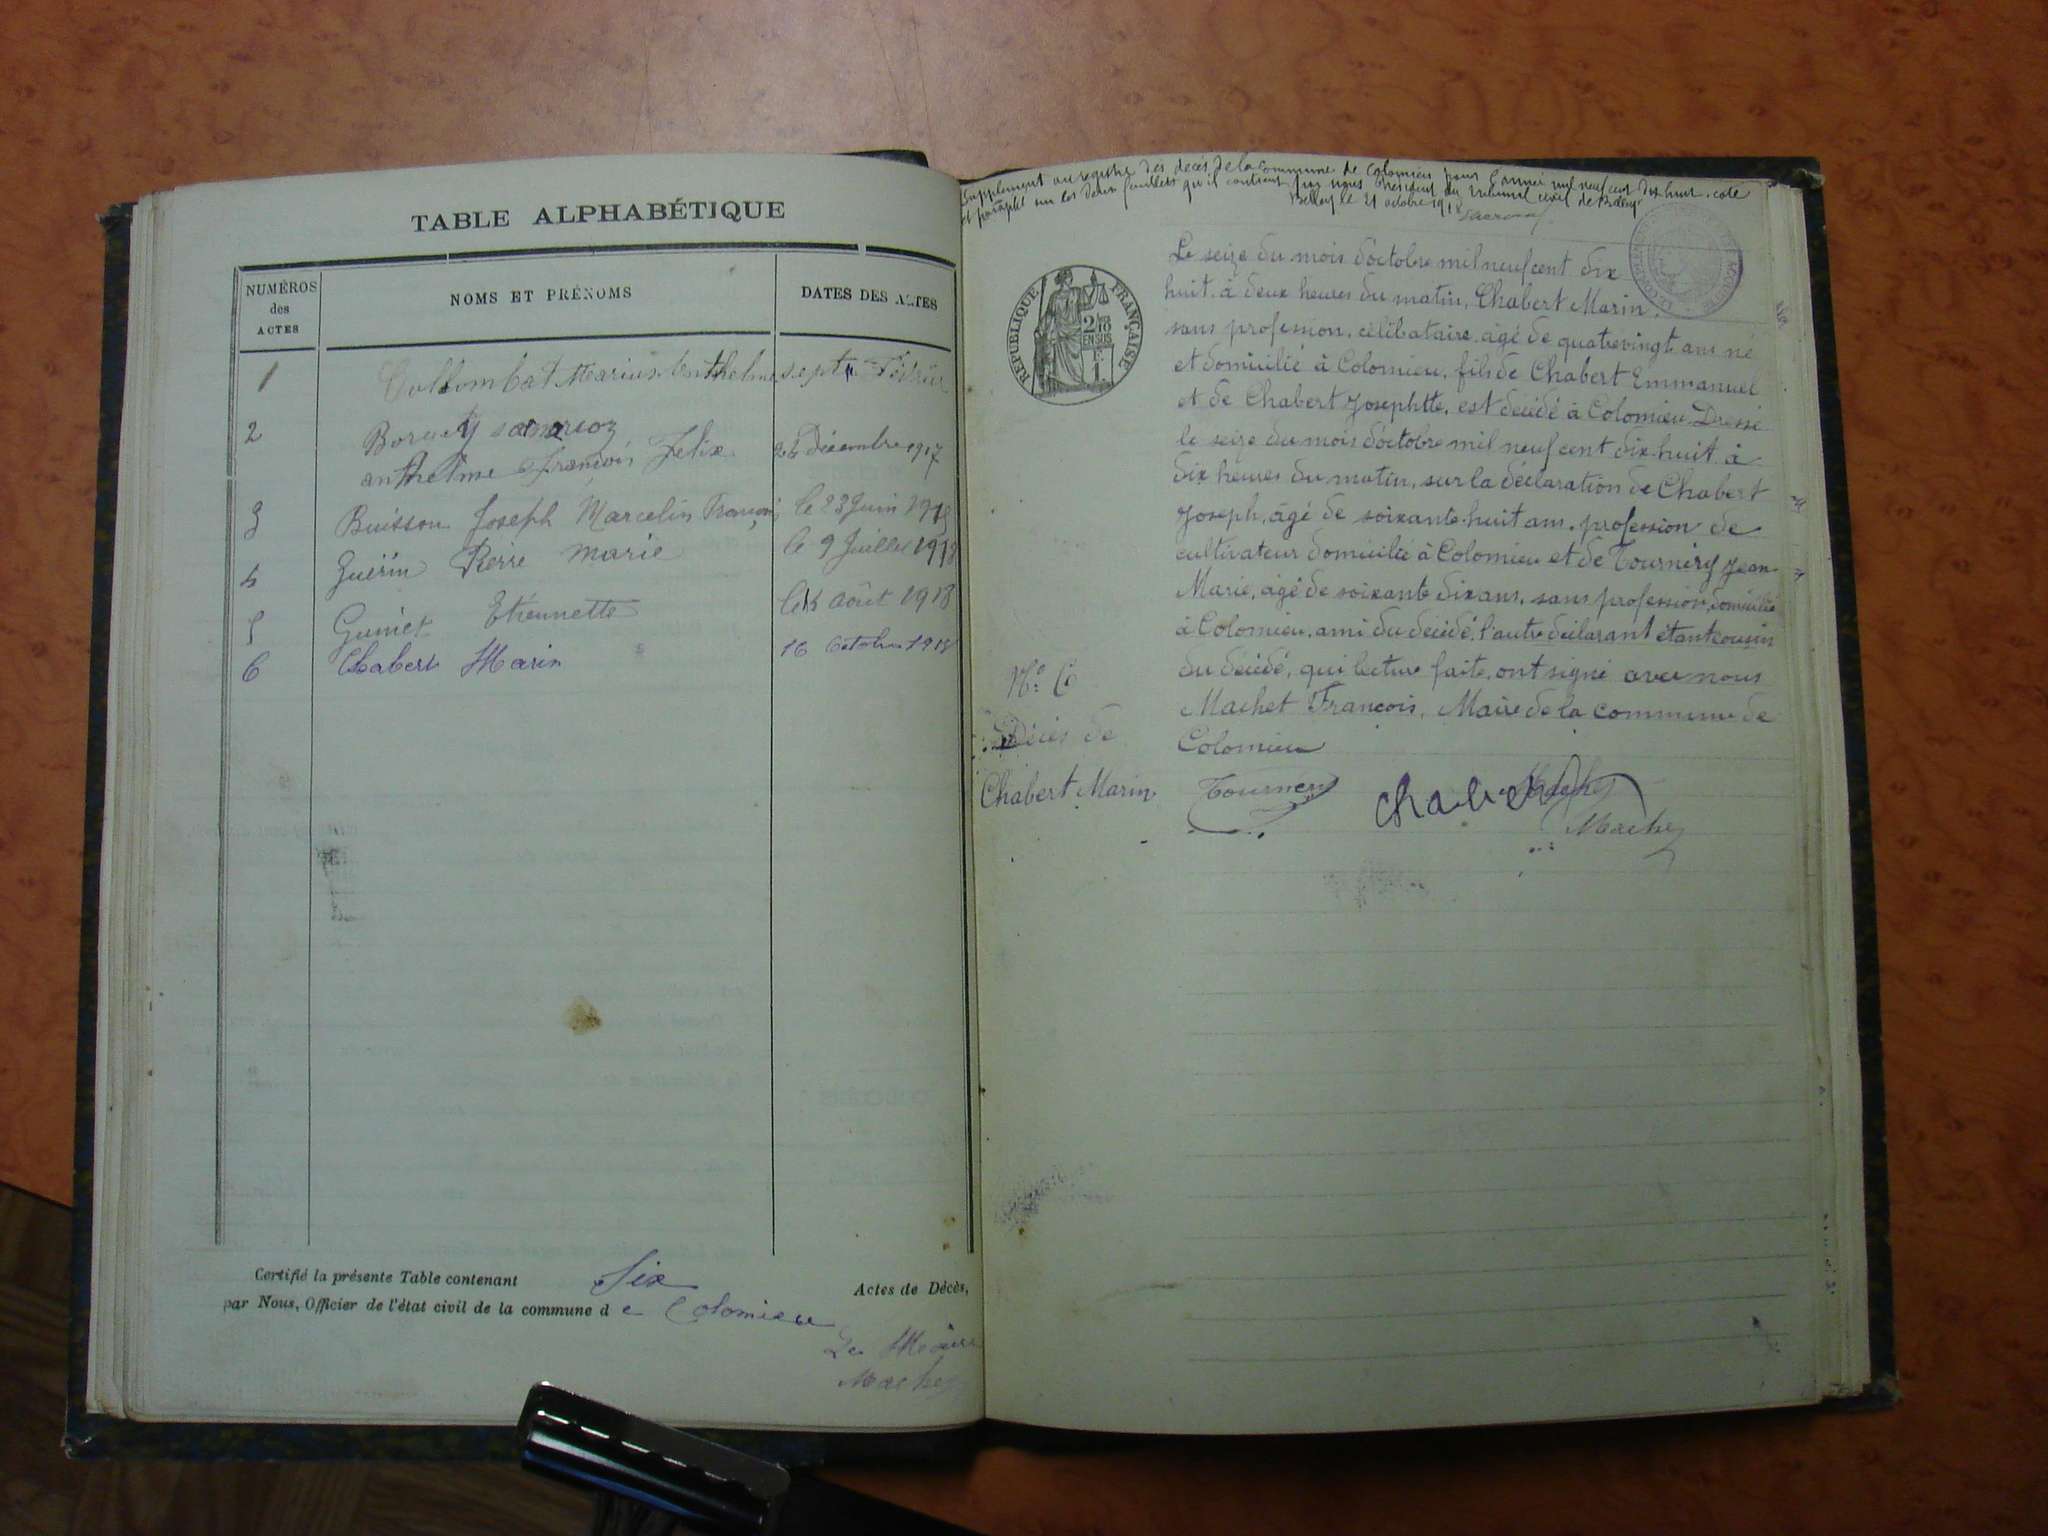 TABLE ALPHABÉTIQUE
NUMÉROS des ACTES
NOMS ET PRÉNOMS
DATES DES ACTES
1 Collombat Marius Anthelme sept Février
2
anthelme François Felix 26 Décembre 1917
3 Buisson Joseph Marcelin François le 23 Juin 1918
4 Guérin Pierre Marie le 9 Juillet 1918
5 Guinet Etiennette le 15 août 1918
6 Chabert Marin 16 Octobre 1918
Certifié la présente Table contenant Six Actes de Décès,
par Nous, Officier de l'état civil de la commune de Colomieu
Le Maire
Machet
Supplément au registre des décès de la commune de Colomieu pour l'année mil neuf cent dix huit, coté
et paraphé sur les deux feuillets qu'il contient par nous Président du Tribunal civil de Belley
Belley le 21 octobre 1918
RÉPUBLIQUE FRANÇAISE
2/10 EN SUS
1 F.
Le seize du mois d'octobre mil neuf cent dix
huit, à deux heures du matin, Chabert Marin,
sans profession, célibataire, âgé de quatrevingt ans né
et domicilié à Colomieu, fils de Chabert Emmanuel
et de Chabert Josephtte, est décédé à Colomieu Dressé
le seize du mois d'octobre mil neuf cent dix-huit à
dix heures du matin, sur la déclaration de Chabert
Joseph, âgé de soixante-huit ans, profession de
cultivateur domicilié à Colomieu et de Tournéry Jean
Marie, âgé de soixante dix ans, sans profession, domicilié
à Colomieu, ami du décédé, l'autre déclarant étant cousin
du décédé, qui lecture faite, ont signé avec nous
Machet François, Maire de la commune de
Colomieu
N° 6
Décès de
Chabert Marin
Tournery Chabert Machet
Machet